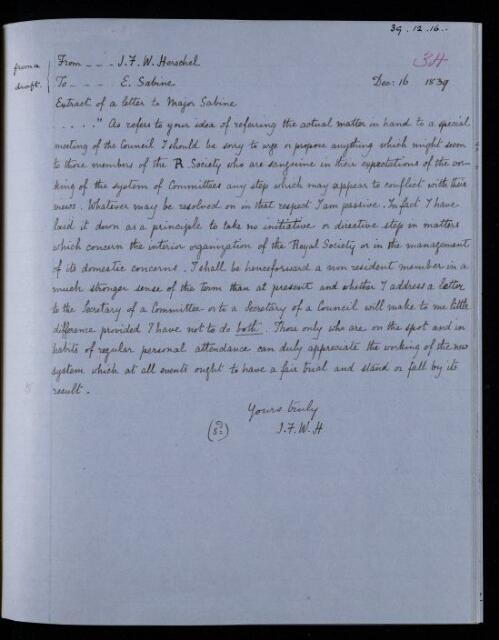 39.12.16..
34
from a draft.
From - - - J.F.W. Herschel
To - - - - E. Sabine
Dec: 16 1839
Extract of a letter to Major Sabine
. . . . . " As refers to your idea of referring the actual matter in hand to a special
meeting of the Council I should be sorry to urge or propose anything which might seem
to those members of the R Society who are sanguine in their expectations of the wor-
king of the system of Committees any step which may appear to conflict with their
views. Whatever may be resolved on in that respect I am passive. In fact I have
laid it down as a principle to take no initiative or directive step in matters
which concern the interior organization of the Royal Society or in the management
of its domestic concerns. I shall be henceforward a non resident member in a
much stronger sense of the term than at present and whether I address a letter
to the Secretary of a Committee or to a Secretary of a Council will make to me little
difference provided I have not to do both. Those only who are on the spot and in
habits of regular personal attendance can duly appreciate the working of the new
system which at all events ought to have a fair trial and stand or fall by its
result.
Yours truly
J.F.W.H